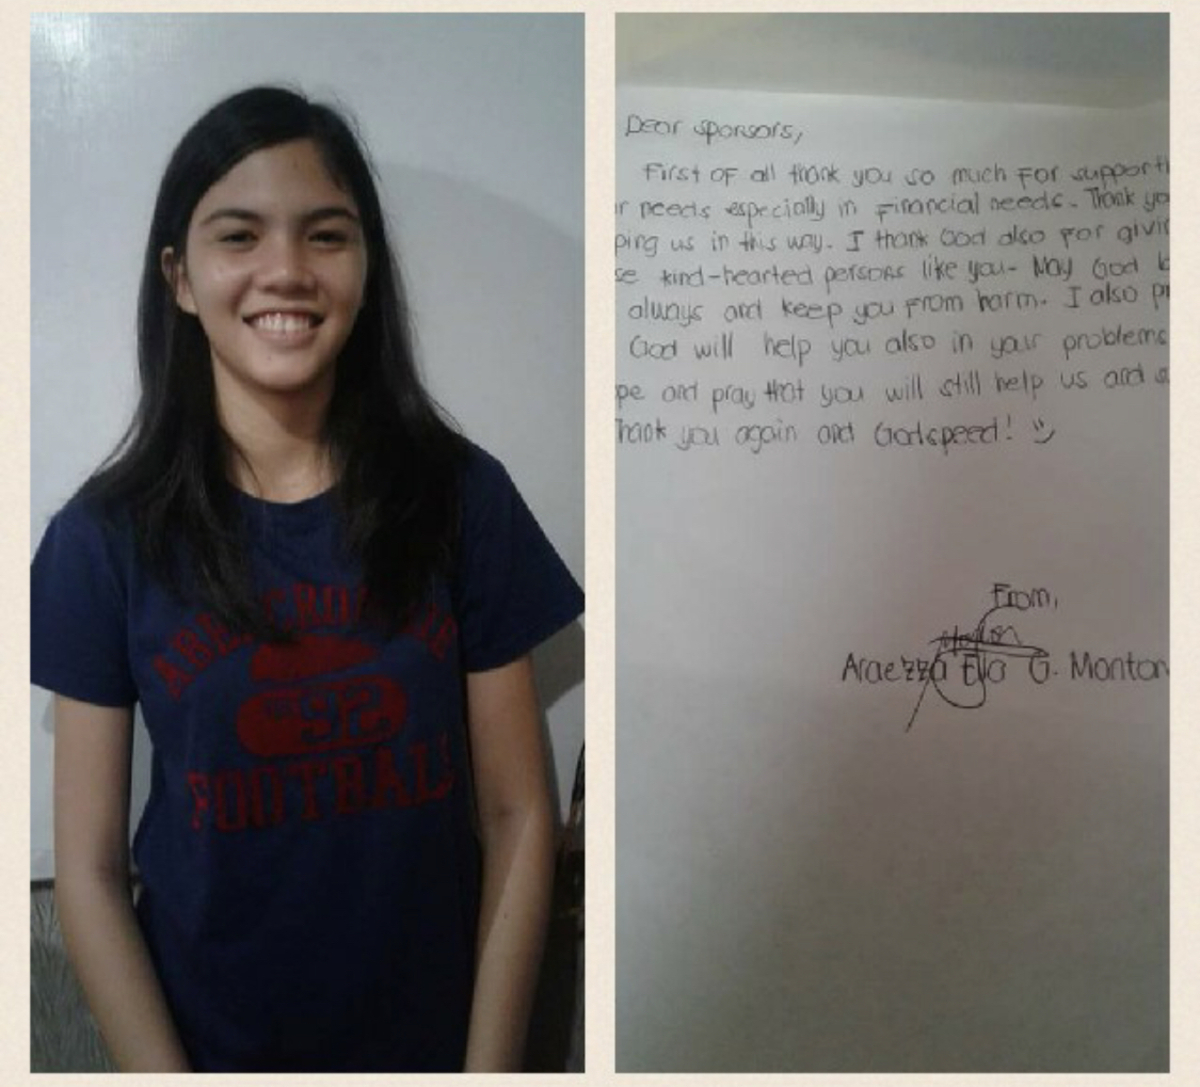 ABERCROMBIE
92
FOOTBALL
Dear sponsors,
First of all thank you so much for supporti
r needs especially in financial needs. Thank yo
ping us in this way. I thank God also for givin
se kind-hearted persons like you. May God b
always and keep you from harm. I also pr
God will help you also in your problems
pe and pray that you will still help us and a
Thank you again and Godspeed!
From,
Araezza Ella G. Monton